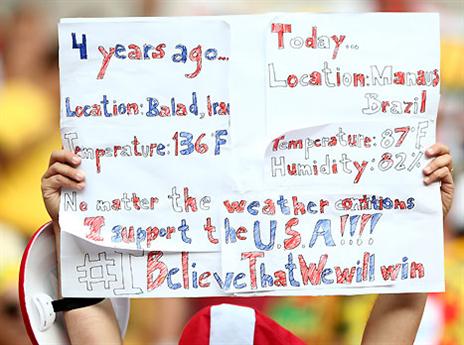 4 years ago...
Location: Balad, Iraq
Temperature: 136°F
Today...
Location: Manaus
Brazil
Temperature: 87°F
Humidity: 82%
No matter the weather conditions
I support the U.S.A!!!!
#I Believe That We will win